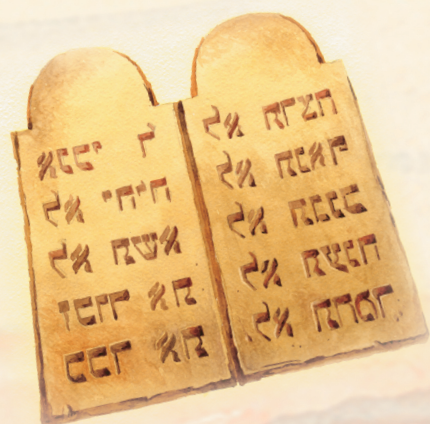 אנכי י
לא יהיה
לא תשא
זכור את
כבד את
לא תרצח
לא תנאף
לא תגנב
לא תענה
לא